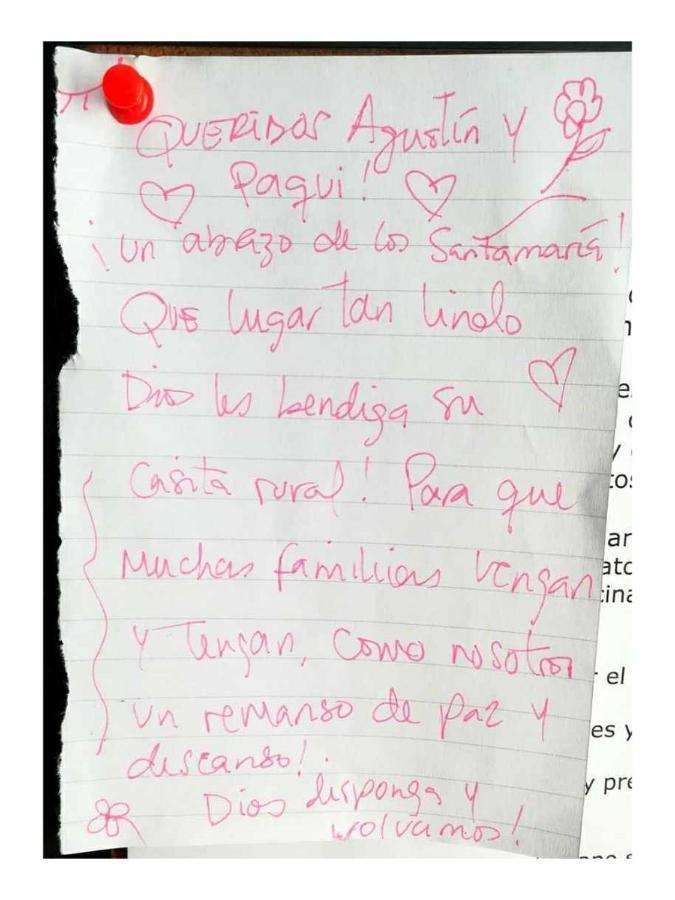 QUERIDOS Agustín y
Paqui!
¡un abrazo de los Santamaría!
QUE lugar tan lindo
Dios les bendiga su
Casita rural! Para que
Muchas familias vengan
y Tengan, como nosotros
un remanso de paz y
descanso!
Dios disponga y
volvamos!
ar
el
es y
y pre